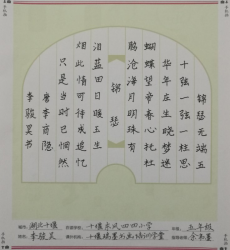 锦瑟无端五
十弦一弦一柱思
华年庄生晓梦迷
蝴蝶望帝春心托杜
鹃沧海月明珠有
锦瑟
泪蓝田日暖玉生
烟此情可待成追忆
只是当时已惘然
唐李商隐
李骏昊书
湖北十堰
十堰东风四四小学
五年级
李骏昊